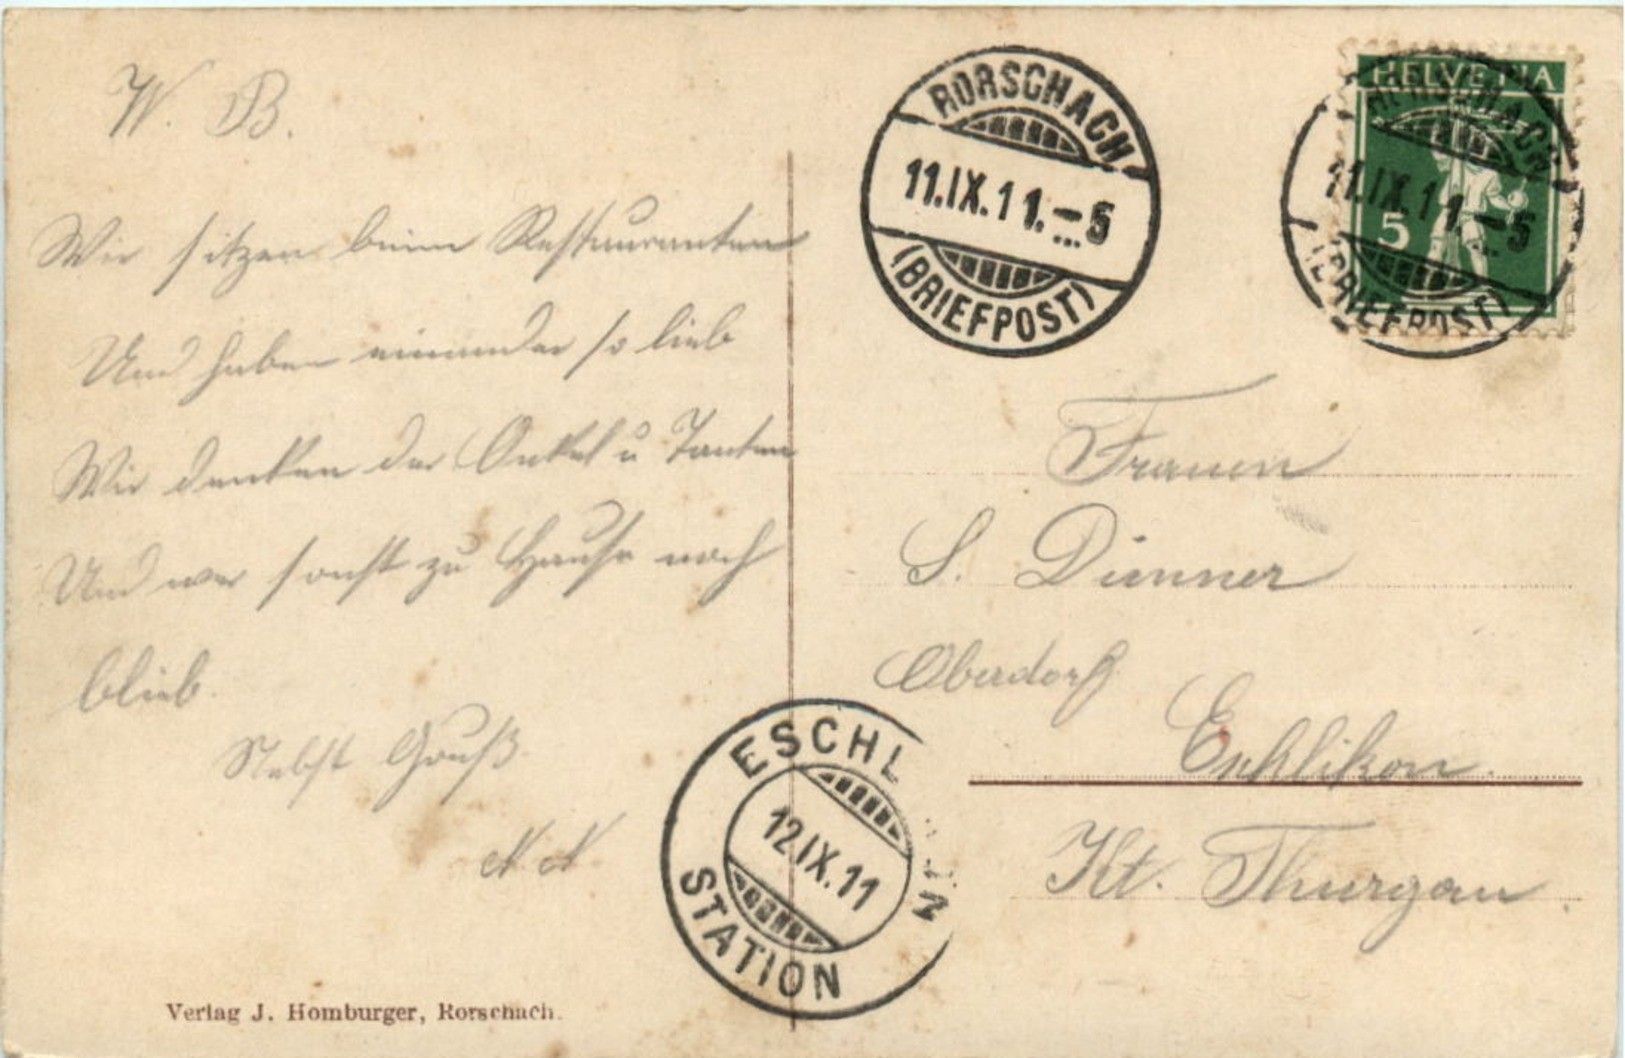 W. B.
Wir sitzen beim Restauranten
Und haben einander so lieb
Wir denken der Onkel u Tanten
Und wer sonst zu Hause noch
blieb.
Nebst Gruß
N. N.
Verlag J. Homburger, Rorschach.
RORSCHACH
11.IX.11.–5
(BRIEFPOST)
HELVETIA
5
RORSCHACH
11.IX.11.–5
(BRIEFPOST)
Frauen
S. Dünner
Oberdorf
Eschlikon.
Kt. Thurgau.
ESCHL
12.IX.11
STATION